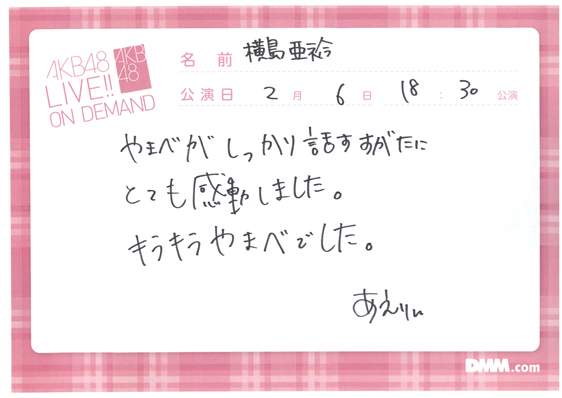 AKB48
LIVE!!
ON DEMAND
AKB
48
名前 横島亜衿
公演日 2月 6日 18:30 公演
やまべが しっかり 話す すがたに
とても感動しました。
キラキラ やまべでした。
あえりぃ
DMM.com